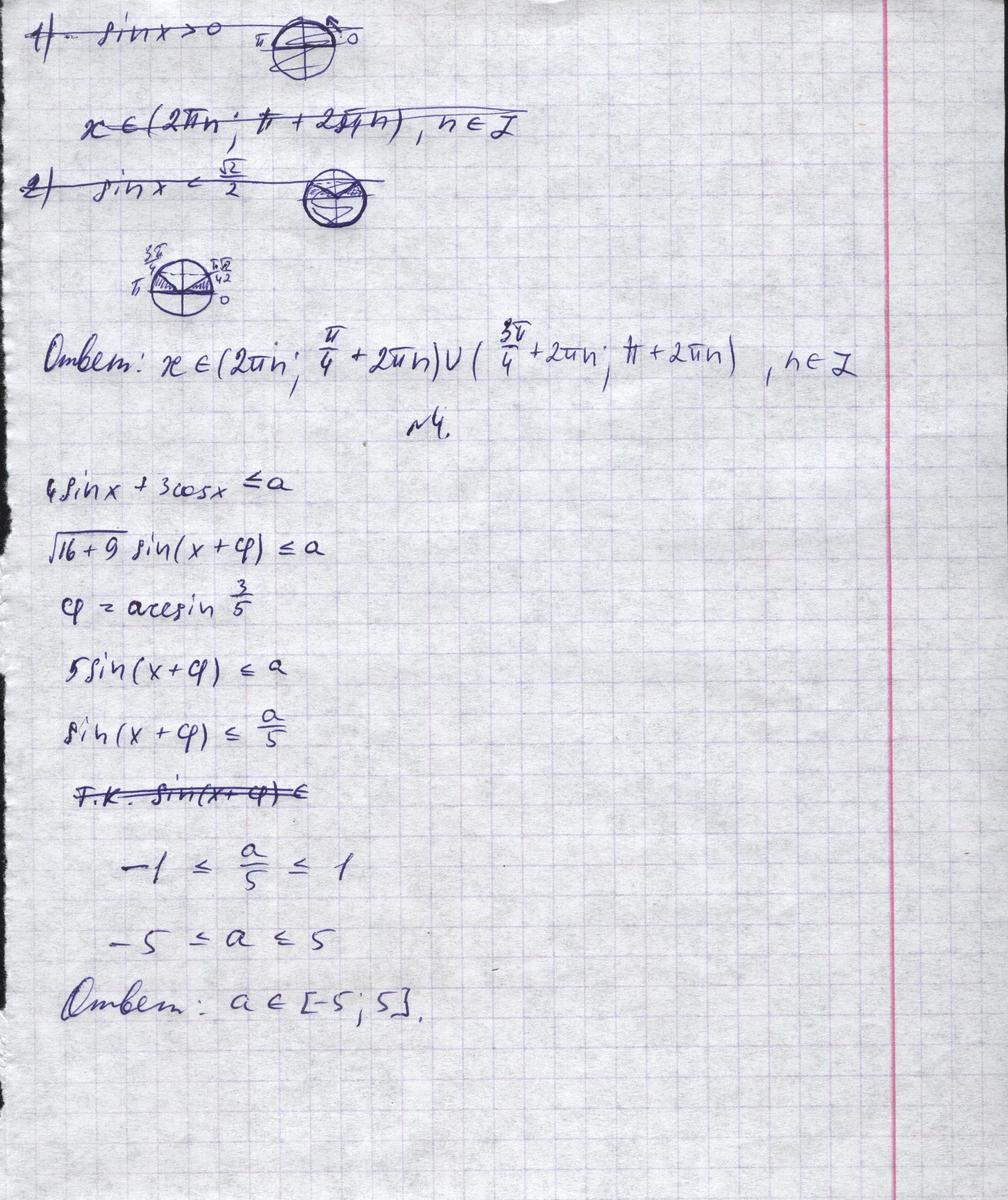 1) sinx > 0
π 0
x ∈ (2πn; π + 2πn), n ∈ Z
2) sinx < √2/2
3π/4
π 0
Ответ: x ∈ (2πn; π/4 + 2πn) ∪ (3π/4 + 2πn; π + 2πn), n ∈ Z
№4.
4sinx + 3cosx ≤ a
√16+9 sin(x + φ) ≤ a
φ = arcsin 3/5
5sin(x + φ) ≤ a
sin(x + φ) ≤ a/5
Т.к. sin(x + φ) ∈
-1 ≤ a/5 ≤ 1
-5 ≤ a ≤ 5
Ответ: a ∈ [-5; 5].